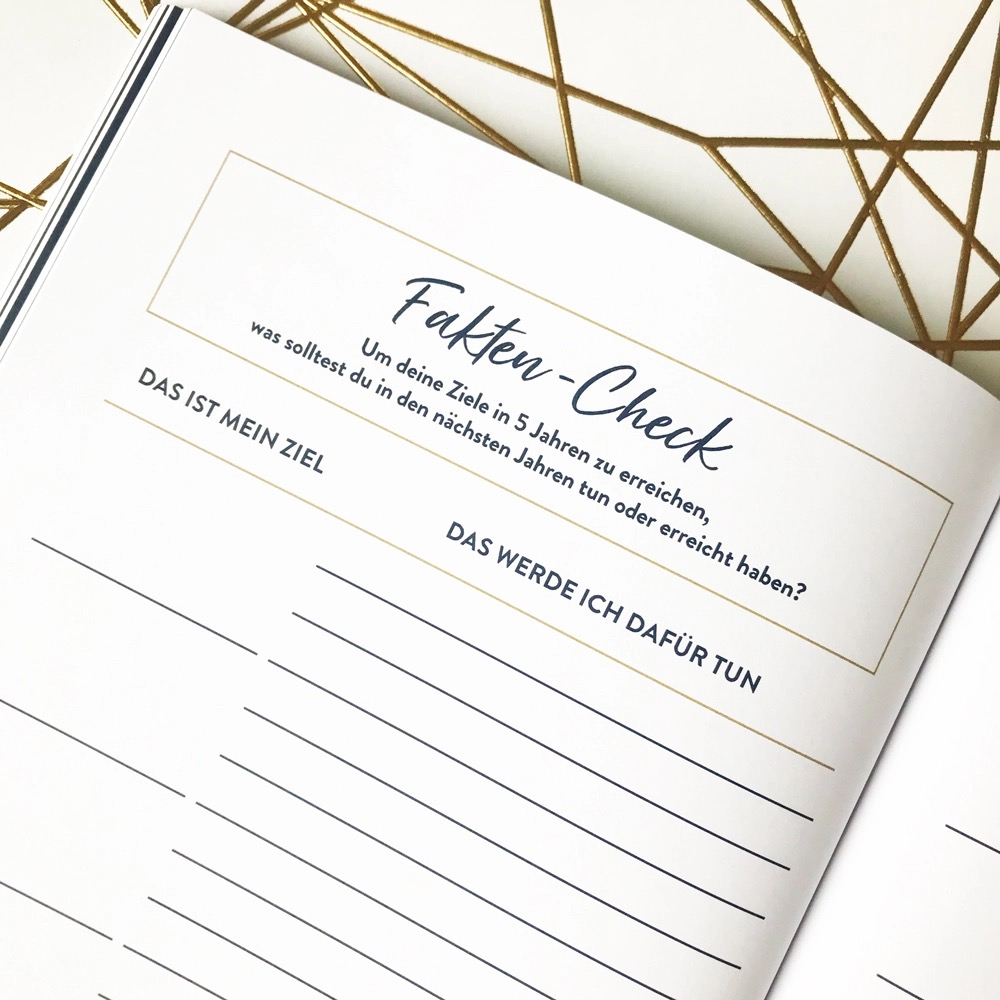 Fakten-Check
Um deine Ziele in 5 Jahren zu erreichen,
was solltest du in den nächsten Jahren tun oder erreicht haben?
DAS IST MEIN ZIEL
DAS WERDE ICH DAFÜR TUN